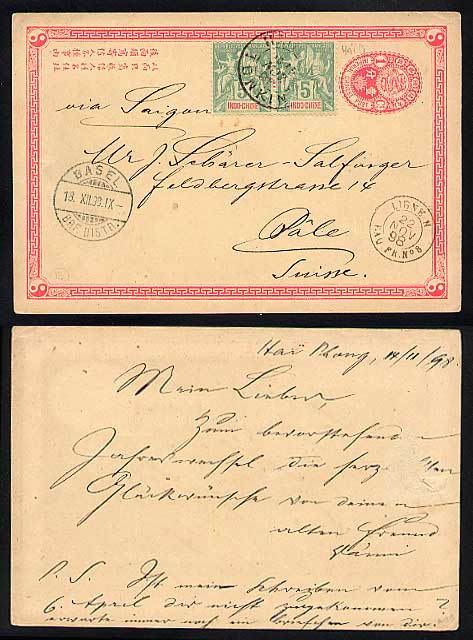 INDO-CHINE INDO-CHINE
5 5
via Saigon
BASEL
13.XII.98.IX-
BRF.DISTR.
Mr J. Schärer-Salfinger
Feldbergstrasse 14
Bâle
Suisse.
LIGNE N
22
NOV
98
PAQ. FR. Nº 8
Haï Phong, 14/11/98.
Mein Lieber,
Zum bevorstehenden
Jahreswechsel die herzlichsten
Glückwünsche von deinem
alten Freund
P.S. Ist mein Schreiben vom
6. April dir nicht zugekommen?
erwarte immer noch ein Briefchen von dir.